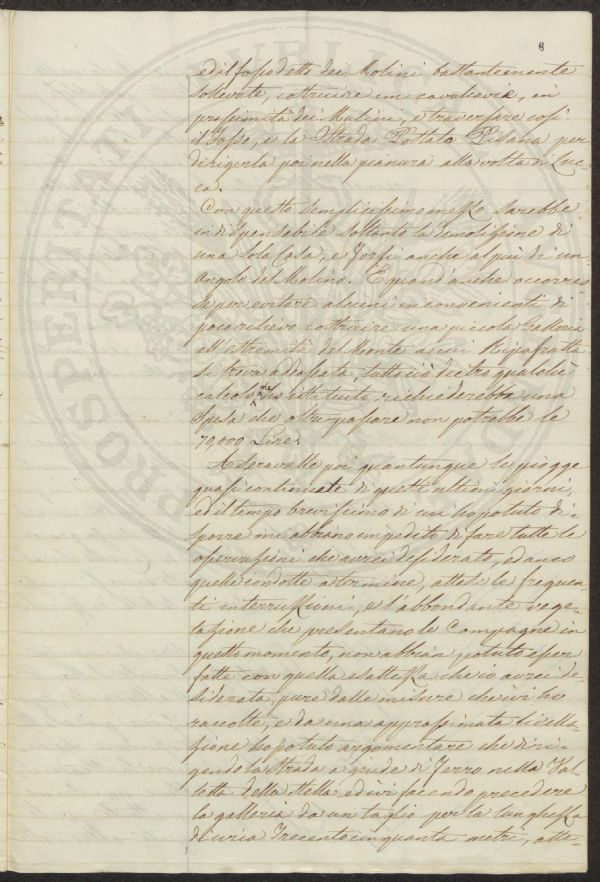 8
ed il fosso detto dei Molini bastantemente
sollevate, costruire un cavalcavia, in
prossimità dei Mulini, e traversare così
il Fosso, e la Strada Postale Pisana per
dirigerla poi nella pianura alla volta di Luc-
ca.
Con questo semplicissimo mezzo sarebbe
indispensabile soltanto la demolizione di
una sola Casa, e forse anche al più di un
Angolo del Molino. E quand'anche occorres-
se per evitare alcuni inconvenienti di
poco rilievo costruire una piccola Galleria
all'estremità del Monte a cui Ripafratta
si trova addossata, tutto ciò dietro qualche
calcolo istituito, richiederebbe una
spesa che oltrepassare non potrebbe le
70,000 Lire.
A Seravalle poi quantunque le piogge
quasi continuate di questi ultimi giorni,
ed il tempo brevissimo di cui ho potuto di-
sporre mi abbiano impedito di fare tutte le
operazioni che avrei desiderato, ed anco
quelle condotte a termine, attese le frequen-
ti interruzioni, e l'abbondante vege-
tazione che presentano le Campagne in
questo momento, non abbian potuto esser
fatte con quella esattezza che io avrei de-
siderata, pure dalle misure che ivi ho
raccolte, e da una approssimata livella-
zione ho potuto argomentare che diri-
gendo la strada a guide di Ferro nella Val-
letta della Stella ed ivi facendo precedere
la galleria da un taglio per la lunghezza
di circa Trecentocinquanta metri, atte-
PROSPERITATI PVBLICAE